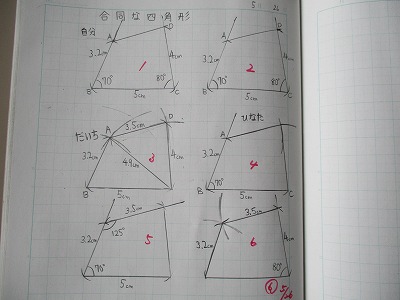 合同な四角形
自分
A
D
3.2cm
4cm
1
70°
80°
B
5cm
C
A
D
3.2cm
4cm
2
70°
80°
B
5cm
C
だいち
A
3.5cm
D
3.2cm
4.9cm
3
4cm
B
5cm
C
ひなた
A
3.2cm
4
70°
B
5cm
C
3.5cm
3.2cm
125°
5
70°
5cm
3.5cm
3.2cm
6
4cm
80°